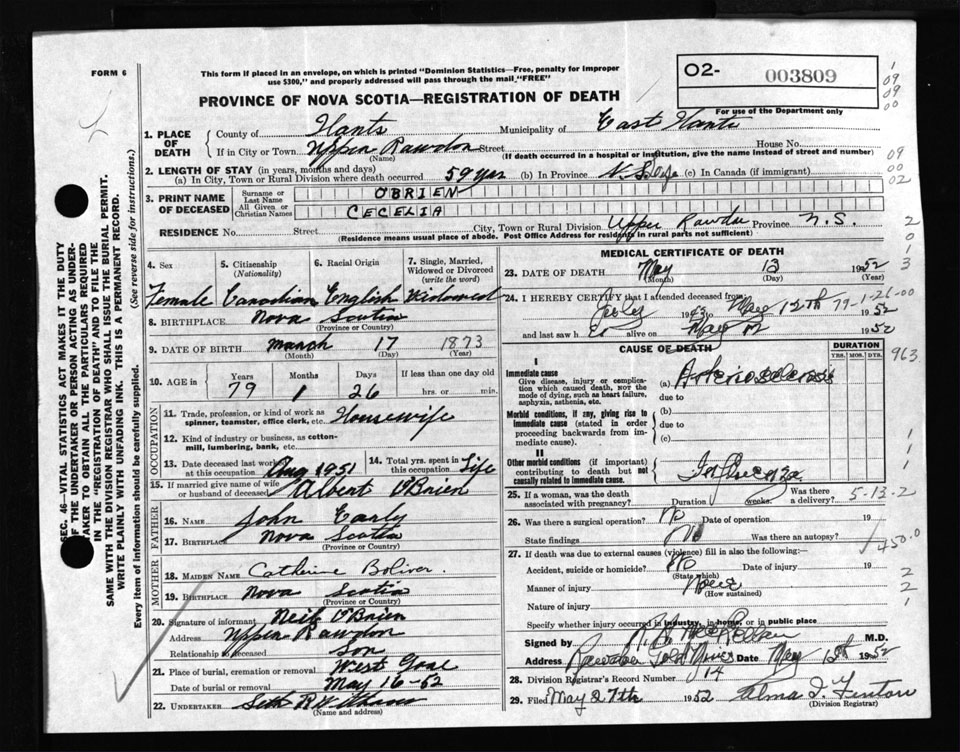 FORM 6
This form if placed in an envelope, on which is printed "Dominion Statistics—Free, penalty for improper
use $300," and properly addressed will pass through the mail "FREE"
O2- 003809
For use of the Department only
PROVINCE OF NOVA SCOTIA—REGISTRATION OF DEATH
1. PLACE OF DEATH
County of Hants Municipality of East Hants
If in City or Town Upper Rawdon Street House No.
(Name) (If death occurred in a hospital or institution, give the name instead of street and number)
2. LENGTH OF STAY (in years, months and days)
(a) In City, Town or Rural Division where death occurred 59 yrs (b) In Province N.S. life (c) In Canada (if immigrant)
3. PRINT NAME OF DECEASED
Surname or Last Name O'BRIEN
All Given or Christian Names CECELIA
RESIDENCE No. Street City, Town or Rural Division Upper Rawdon Province N.S.
(Residence means usual place of abode. Post Office Address for residents in rural parts not sufficient)
4. Sex Female
5. Citizenship (Nationality) Canadian
6. Racial Origin English
7. Single, Married, Widowed or Divorced (write the word) Widowed
8. BIRTHPLACE Nova Scotia
(Province or Country)
9. DATE OF BIRTH March 17 1873
(Month) (Day) (Year)
10. AGE in Years 79 Months 1 Days 26 If less than one day old hrs. or min.
OCCUPATION
11. Trade, profession, or kind of work as spinner, teamster, office clerk, etc. Housewife
12. Kind of industry or business, as cotton-mill, lumbering, bank, etc.
13. Date deceased last worked at this occupation Aug 1951
14. Total yrs. spent in this occupation Life
15. If married give name of wife or husband of deceased Albert O'Brien
FATHER
16. NAME John Early
17. BIRTHPLACE Nova Scotia
(Province or Country)
MOTHER
18. MAIDEN NAME Catherine Boliver
19. BIRTHPLACE Nova Scotia
(Province or Country)
20. Signature of informant Neil O'Brien
Address Upper Rawdon
Relationship to deceased Son
21. Place of burial, cremation or removal West Gore
Date of burial or removal May 16-52
22. UNDERTAKER Seth
(Name and address)
MEDICAL CERTIFICATE OF DEATH
23. DATE OF DEATH May 13 1952
(Month) (Day) (Year)
24. I HEREBY CERTIFY that I attended deceased from
May 12th 1952
79-1-26-00
and last saw h er alive on May 12 1952
CAUSE OF DEATH
DURATION
YRS. MOS. DYS.
I
Immediate cause
Give disease, injury or complication which caused death, not the mode of dying, such as heart failure, asphyxia, asthenia, etc.
(a) Arteriosclerosis
due to
Morbid conditions, if any, giving rise to immediate cause (stated in order proceeding backwards from immediate cause).
(b)
due to
(c)
II
Other morbid conditions (if important) contributing to death but not causally related to immediate cause.
Influenza
25. If a woman, was the death associated with pregnancy? Duration weeks. Was there a delivery?
5-13-2
26. Was there a surgical operation? No Date of operation 19
State findings No Was there an autopsy?
450.0
27. If death was due to external causes (violence) fill in also the following:—
Accident, suicide or homicide? No Date of injury 19
(State which)
Manner of injury
(How sustained)
Nature of injury
Specify whether injury occurred in industry, in home, or in public place
Signed by M.D.
Address Rawdon Gold Mines Date May 1952
28. Division Registrar's Record Number 14
29. Filed May 27th 1952 Alma I. Fenton
(Division Registrar)
SEC. 46—VITAL STATISTICS ACT MAKES IT THE DUTY
OF THE UNDERTAKER OR PERSON ACTING AS UNDERTAKER TO OBTAIN ALL THE PARTICULARS REQUIRED
IN THE "REGISTRATION OF DEATH" AND TO FILE THE
SAME WITH THE DIVISION REGISTRAR WHO SHALL ISSUE THE BURIAL PERMIT.
WRITE PLAINLY WITH UNFADING INK. THIS IS A PERMANENT RECORD.
Every item of Information should be carefully supplied. (See reverse side for instructions.)
1
09
09
00
09
00
02
2
0
1
3
963
1
1
1
2
2
1